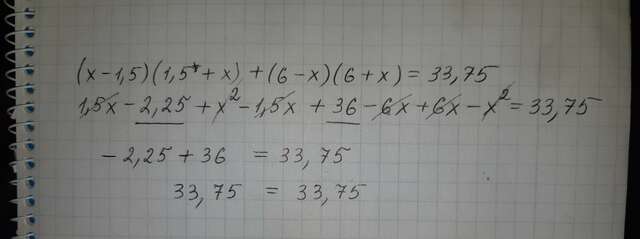 (x-1,5)(1,5+x)+(6-x)(6+x)=33,75
1,5x-2,25+x²-1,5x+36-6x+6x-x²=33,75
-2,25+36 = 33,75
33,75 = 33,75